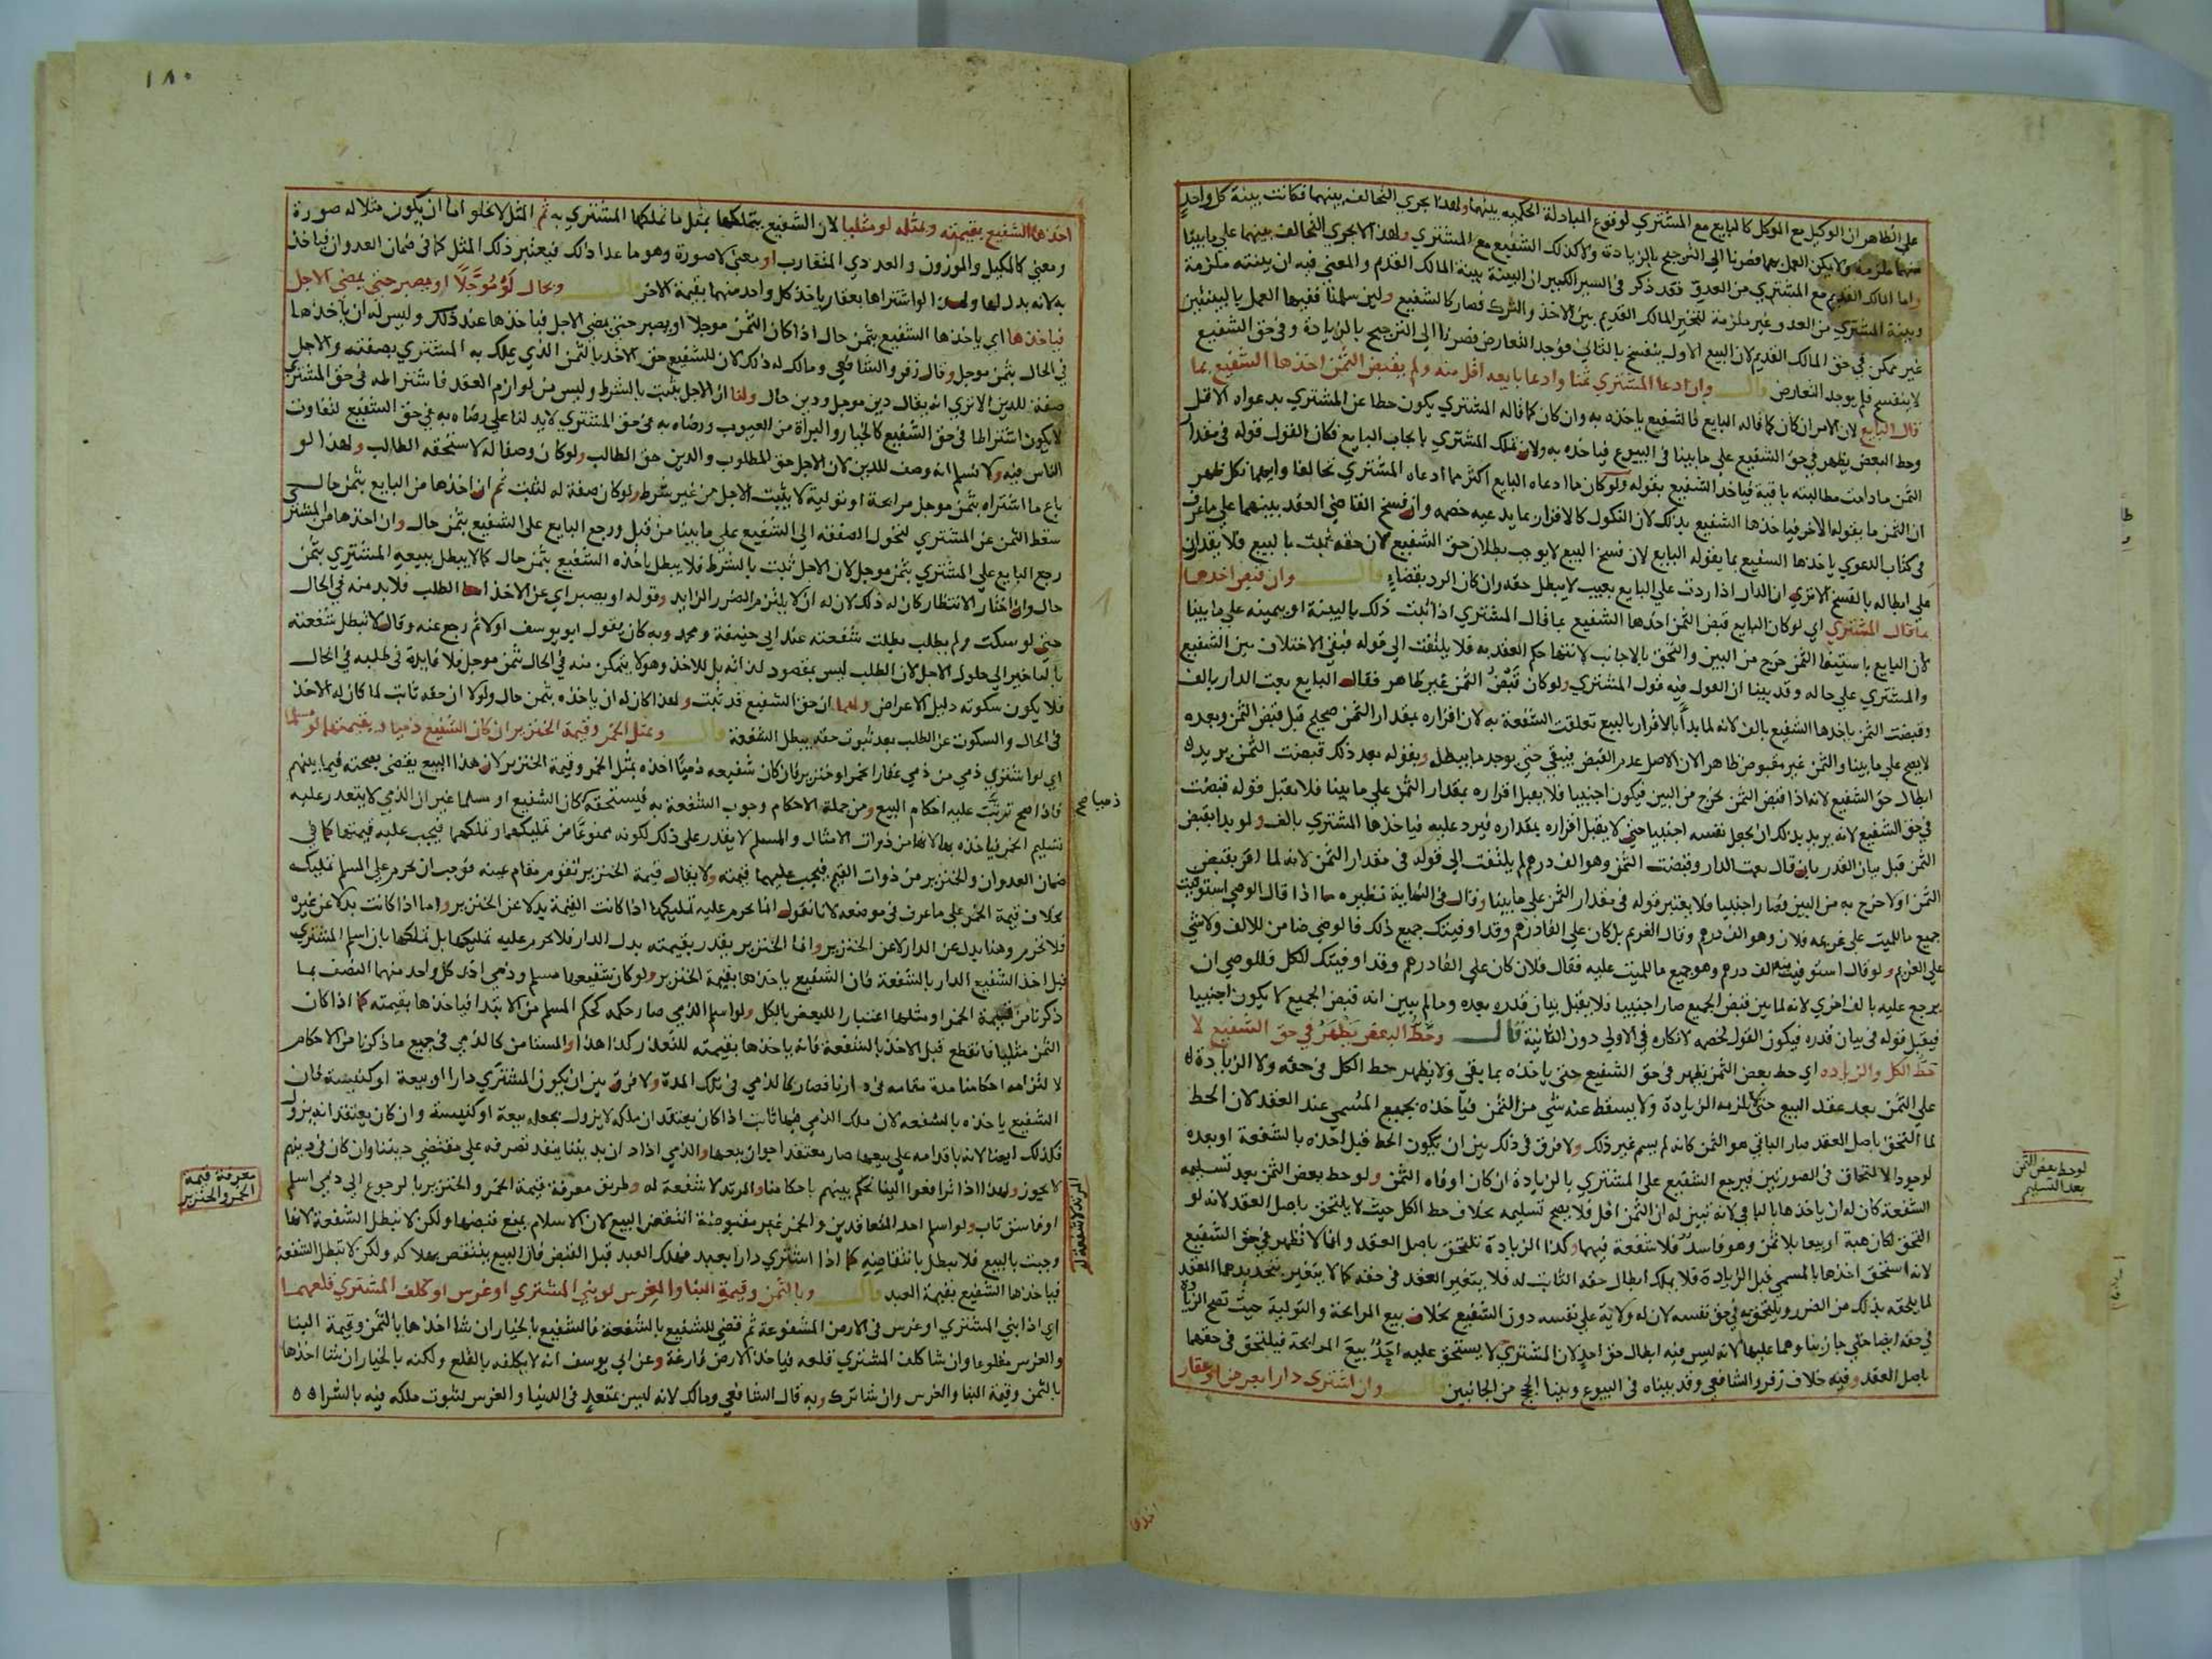 على الظاهر ان الوكيل مع الموكل كالبايع مع المشتري لوقوع المبادلة الحكمية بينهما ولهذا يجري التحالف بينهما فكانت بينة كل واحد
منهما ملزمة ولا يمكن العمل بهما فصرنا الى الترجيح بالزيادة ولا كذلك الشفيع مع المشتري ولهذا لا يجري التحالف بينهما على ما بينا
واما المالك القديم مع المشتري من العدو فقد ذكر في السير الكبير ان البينة بينة المالك القديم والمعنى فيه ان بينته ملزمة
وبينة المشتري من العدو غير ملزمة لتخير المالك القديم بين الاخذ والترك فصار كالشفيع ولين سلمنا ففيها العمل بالبينتين
غير ممكن في حق المالك القديم لان البيع الاول ينفسخ بالثاني فوجد التعارض فصرنا الى الترجيح بالزيادة وفي حق الشفيع
لا ينفسخ فلم يوجد التعارض قال وان ادعا المشتري ثمنا وادعا بايعه اقل منه ولم يقبض الثمن اخذها الشفيع بما
قال البايع لان الامر ان كان كما قاله البايع فالشفيع ياخذه به وان كان كما قاله المشتري يكون حطا عن المشتري بدعواه الاقل
وحط البعض يظهر في حق الشفيع على ما بينا في البيوع فياخذه به ولان تملك المشتري بايجاب البايع فكان القول قوله في مقدار
الثمن ما دامت مطالبته باقية فياخذ الشفيع بقوله ولو كان ما ادعاه البايع اكثر مما ادعاه المشتري تحالفا وايهما نكل ظهر
ان الثمن ما يقوله الاخر فياخذها الشفيع بذلك لان النكول كالاقرار بما يدعيه خصمه وان فسخ القاضي العقد بينهما على ما عرف
في كتاب الدعوي ياخذها الشفيع بما يقوله البايع لان فسخ البيع لا يوجب بطلان حق الشفيع لان حقه ثبت بالبيع فلا يقدران
على ابطاله بالفسخ الا تري ان الدار اذا ردت على البايع بعيب لا يبطل حقه وان كان الرد بقضاء قال وان قبض اخذها
بما قال المشتري اي لو كان البايع قبض الثمن اخذها الشفيع بما قال المشتري اذا اثبت ذلك بالبينة او بيمينه على ما بينا
لان البايع باستيفا الثمن خرج من البين والتحق بالاجانب لانتها حكم العقد به فلا يلتفت الى قوله فبقي الاختلاف بين الشفيع
والمشتري على حاله وقد بينا ان القول فيه قول المشتري ولو كان قبض الثمن غير ظاهر فقال البايع بعت الدار بالف
وقبضت الثمن ياخذها الشفيع بالف لانه لما بدأ بالاقرار بالبيع تعلقت الشفعة به لان اقراره بمقدار الثمن صحيح قبل قبض الثمن وبعده
لا يصح على ما بينا والثمن غير مقبوض ظاهرا لان الاصل عدم القبض فيبقى حتى يوجد ما يبطله وبقوله بعد ذلك قبضت الثمن يريد
ابطال حق الشفيع لانه اذا قبض الثمن يخرج من البين فيكون اجنبيا فلا يقبل اقراره بمقدار الثمن على ما بينا فلا يقبل قوله قبضت
في حق الشفيع لانه يريد بذلك ان يجعل نفسه اجنبيا حتى لا يقبل اقراره بمقداره فيرد عليه فياخذها المشتري بالف ولو بدا بقبض
الثمن قبل بيان القدر بان قال بعت الدار وقبضت الثمن وهو الف درهم لم يلتفت الى قوله في مقدار الثمن لانه لما اقر بقبض
الثمن اولا خرج به من البين وصار اجنبيا فلا يعتبر قوله في مقدار الثمن على ما بينا وقال في النهاية نظيره ما اذا قال الوصي استوفيت
جميع ما للميت على غريمه فلان وهو الف درهم وقال الغريم بل كان علي الفا درهم وقد اوفيتك جميع ذلك فالوصي ضامن للالف ولا شي
على الغريم ولو قال استوفيت منه الف درهم وهو جميع ما للميت عليه فقال فلان كان علي الفا درهم وقد اوفيتك الكل فللوصي ان
يرجع عليه بالف اخري لانه لما بين قبض الجميع صار اجنبيا فلا يقبل بيان قدره بعده وما لم يبين انه قبض الجميع لا يكون اجنبيا
فيقبل قوله في بيان قدره فيكون القول لخصمه لانكاره في الاولى دون الثانية قال وحط البعض يظهر في حق الشفيع لا
حط الكل والزيادة اي حط بعض الثمن يظهر في حق الشفيع حتى ياخذه بما بقي ولا يظهر حط الكل في حقه ولا الزيادة
على الثمن بعد عقد البيع حتى لا تلزمه الزيادة ولا يسقط عنه شي من الثمن فياخذه بجميع المسمي عند العقد لان الحط
لما التحق باصل العقد صار الباقي هو الثمن كانه لم يسم غير ذلك ولا فرق في ذلك بين ان يكون الحط قبل اخذه بالشفعة او بعده
لوجود الالتحاق في الصورتين فيرجع الشفيع على المشتري بالزيادة ان كان اوفاه الثمن ولو حط بعض الثمن بعد تسليمه
الشفعة كان له ان ياخذها بالباقي لانه تبين له ان الثمن اقل فلا يصح تسليمه بخلاف حط الكل حيث لا يلتحق باصل العقد لانه لو
التحق لكان هبة او بيعا بلا ثمن وهو فاسد فلا شفعة فيهما وكذا الزيادة تلتحق باصل العقد وانما لا تظهر في حق الشفيع
لانه استحق اخذها بالمسمي قبل الزيادة فلا يملك ابطال حقه الثابت له فلا يتغير العقد في حقه كما لا يتغير بتجديدهما العقد
لما يلحقه بذلك من الضرر ويلتحق به في حق نفسه لان له ولاية على نفسه دون الشفيع بخلاف بيع المرابحة والتولية حيث تصح الزيادة
في حقه ايضا حتى جاز بناوهما عليهما لانه ليس فيه ابطال حق احد لان المشتري لا يستحق عليه احد بيع المرابحة فيلتحق في حقهما
باصل العقد وفيه خلاف زفر والشافعي وقد بيناه في البيوع وبينا الحجج من الجانبين قال وان اشتري دارا بعرض او عقار
لو حط بعض الثمن
بعد التسليم
١٨٠
اخذها الشفيع بقيمته وبمثله لو مثليا لان الشفيع يتملكها بمثل ما تملكها المشتري به ثم المثل لا يخلو اما ان يكون مثلا له صورة
ومعني كالمكيل والموزون والعددي المتقارب او معنى لا صورة وهو ما عدا ذلك فيعتبر ذلك المثل كما في ضمان العدوان فياخذ
به لانه بدل لها ولهذا لو اشتراها بعقار ياخذ كل واحد منهما بقيمة الاخر قال وبحال لو مؤجلا او يصبر حتى يمضي الاجل
فياخذها اي ياخذها الشفيع بثمن حال اذا كان الثمن موجلا او يصبر حتى يمضي الاجل فياخذها عند ذلك وليس له ان ياخذها
في الحال بثمن موجل وقال زفر والشافعي ومالك له ذلك لان للشفيع حق الاخذ بالثمن الذي يملك به المشتري بصفته والاجل
صفة للدين الا تري انه يقال دين موجل ودين حال ولنا ان الاجل يثبت بالشرط وليس من لوازم العقد فاشتراطه في حق المشتري
لا يكون اشتراطا في حق الشفيع كالخيار والبراة من العيوب ورضاه به في حق المشتري لا يدلنا على رضاه به في حق الشفيع لتفاوت
الناس فيه ولا نسلم انه وصف للدين لان الاجل حق المطلوب والدين حق الطالب ولو كان وصفا له لاستحقه الطالب ولهذا لو
باع ما اشتراه بثمن موجل مرابحة او تولية لا يثبت الاجل من غير شرط ولو كان صفة له لثبت ثم ان اخذها من البايع بثمن حال
سقط الثمن عن المشتري لتحول الصفقة الى الشفيع على ما بينا من قبل ورجع البايع على الشفيع بثمن حال وان اخذها من المشتري
رجع البايع على المشتري بثمن موجل لان الاجل ثبت بالشرط فلا يبطل باخذه الشفيع بثمن حال كما لا يبطل ببيعه المشتري بثمن
حال وان اختار الانتظار كان له ذلك لان له ان لا يلتزم الضرر الزايد وقوله او يصبر اي عن الاخذ اما الطلب فلا بد منه في الحال
حتى لو سكت ولم يطلب بطلت شفعته عند ابي حنيفة ومحمد وبه كان يقول ابو يوسف اولا ثم رجع عنه وقال لا تبطل شفعته
بالتاخير الى حلول الاجل لان الطلب ليس بمقصود لذاته بل للاخذ وهو لا يتمكن منه في الحال بثمن موجل فلا فايدة في طلبه في الحال
فلا يكون سكوته دليل الاعراض ولهما ان حق الشفيع قد ثبت ولهذا كان له ان ياخذه بثمن حال ولولا ان حقه ثابت لما كان له الاخذ
في الحال والسكوت عن الطلب بعد ثبوت حقه يبطل الشفعة قال وبمثل الخمر وقيمة الخنزير ان كان الشفيع ذميا وبقيمتهما لو مسلما
اي لو اشتري ذمي من ذمي عقارا بخمر او خنزير فان كان شفيعه ذميا اخذه بمثل الخمر وقيمة الخنزير لان هذا البيع يقضي بصحته فيما بينهم
فاذا صح ترتب عليه احكام البيع ومن جملة الاحكام وجوب الشفعة به فيستحقه كان الشفيع او مسلما غير ان الذمي لا يتعذر عليه
تسليم الخمر فياخذه بها لانها من ذوات الامثال والمسلم لا يقدر على ذلك لكونه ممنوعا من تمليكهما وتملكهما فيجب عليه قيمتها كما في
ضمان العدوان والخنزير من ذوات القيم فيجب عليهما قيمته ولا يقال قيمة الخنزير تقوم مقام عينه فوجب ان يحرم على المسلم تمليكه
بخلاف قيمة الخمر على ما عرف في موضعه لانا نقول انما يحرم عليه تمليكها اذا كانت القيمة بدلا عن الخنزير واما اذا كانت بدلا عن غيره
فلا تحرم وهنا بدل عن الدار لا عن الخنزير وانما الخنزير يقدر بقيمته بدل الدار فلا يحرم عليه تمليكها بل تملكها بان اسلم المشتري
قبل اخذ الشفيع الدار بالشفعة فان الشفيع ياخذها بقيمة الخنزير ولو كان شفيعها مسلم وذمي اخذ كل واحد منهما النصف بما
ذكرنا من قيمة الخمر او مثلها اعتبارا للبعض بالكل ولو اسلم الذمي صار حكمه كحكم المسلم من الابتدا فياخذها بقيمته كما اذا كان
الثمن مثليا فانقطع قبل الاخذ بالشفعة فانه ياخذها بقيمته للتعذر كذا هذا والمستامن كالذمي في جميع ما ذكرنا من الاحكام
لالتزامه احكامنا مدة مقامه في دارنا فصار كالذمي في تلك المدة ولا فرق بين ان يكون المشتري دارا او بيعة او كنيسة فان
الشفيع ياخذه بالشفعة لان ملك الذمي فيها ثابت اذا كان يعتقد ان ملكه لا يزول بجعله بيعة او كنيسة وان كان يعتقد انه يزول
فكذلك ايضا لانه باقدامه على بيعها صار معتقدا جواز بيعها والذمي اذا دان بديننا ينفذ تصرفه على مقتضي ديننا وان كان في دينهم
لا يجوز ولهذا اذا ترافعوا الينا نحكم بينهم باحكامنا والمرتد لا شفعة له وطريق معرفة قيمة الخمر والخنزير بالرجوع الى ذمي اسلم
او فاسق تاب ولو اسلم احد المتعاقدين والخمر غير مقبوضة انتقض البيع لان الاسلام يمنع قبضها ولكن لا تبطل الشفعة لانها
وجبت بالبيع فلا تبطل بانتقاضه كما اذا اشتري دارا بعبد فهلك العبد قبل القبض فان البيع ينتقض بهلاكه ولكن لا تبطل الشفعة
فياخذها الشفيع بقيمة العبد قال وبالثمن وقيمة البنا والغرس لو بنى المشتري او غرس او كلف المشتري قلعهما
اي اذا بني المشتري او غرس في الارض المشفوعة ثم قضي للشفيع بالشفعة فالشفيع بالخيار ان شا اخذها بالثمن وقيمة البنا
والغرس مقلوعا وان شا كلف المشتري قلعه فياخذ الارض فارغة وعن ابي يوسف انه لا يكلفه بالقلع ولكنه بالخيار ان شا اخذها
بالثمن وقيمة البنا والغرس وان شا ترك وبه قال الشافعي ومالك لانه ليس متعد في البنا والغرس لثبوت ملكه فيه بالشرا
ذميا صح
المرتد لا شفعة له
معرفة قيمة
الخمر والخنزير
اخذها